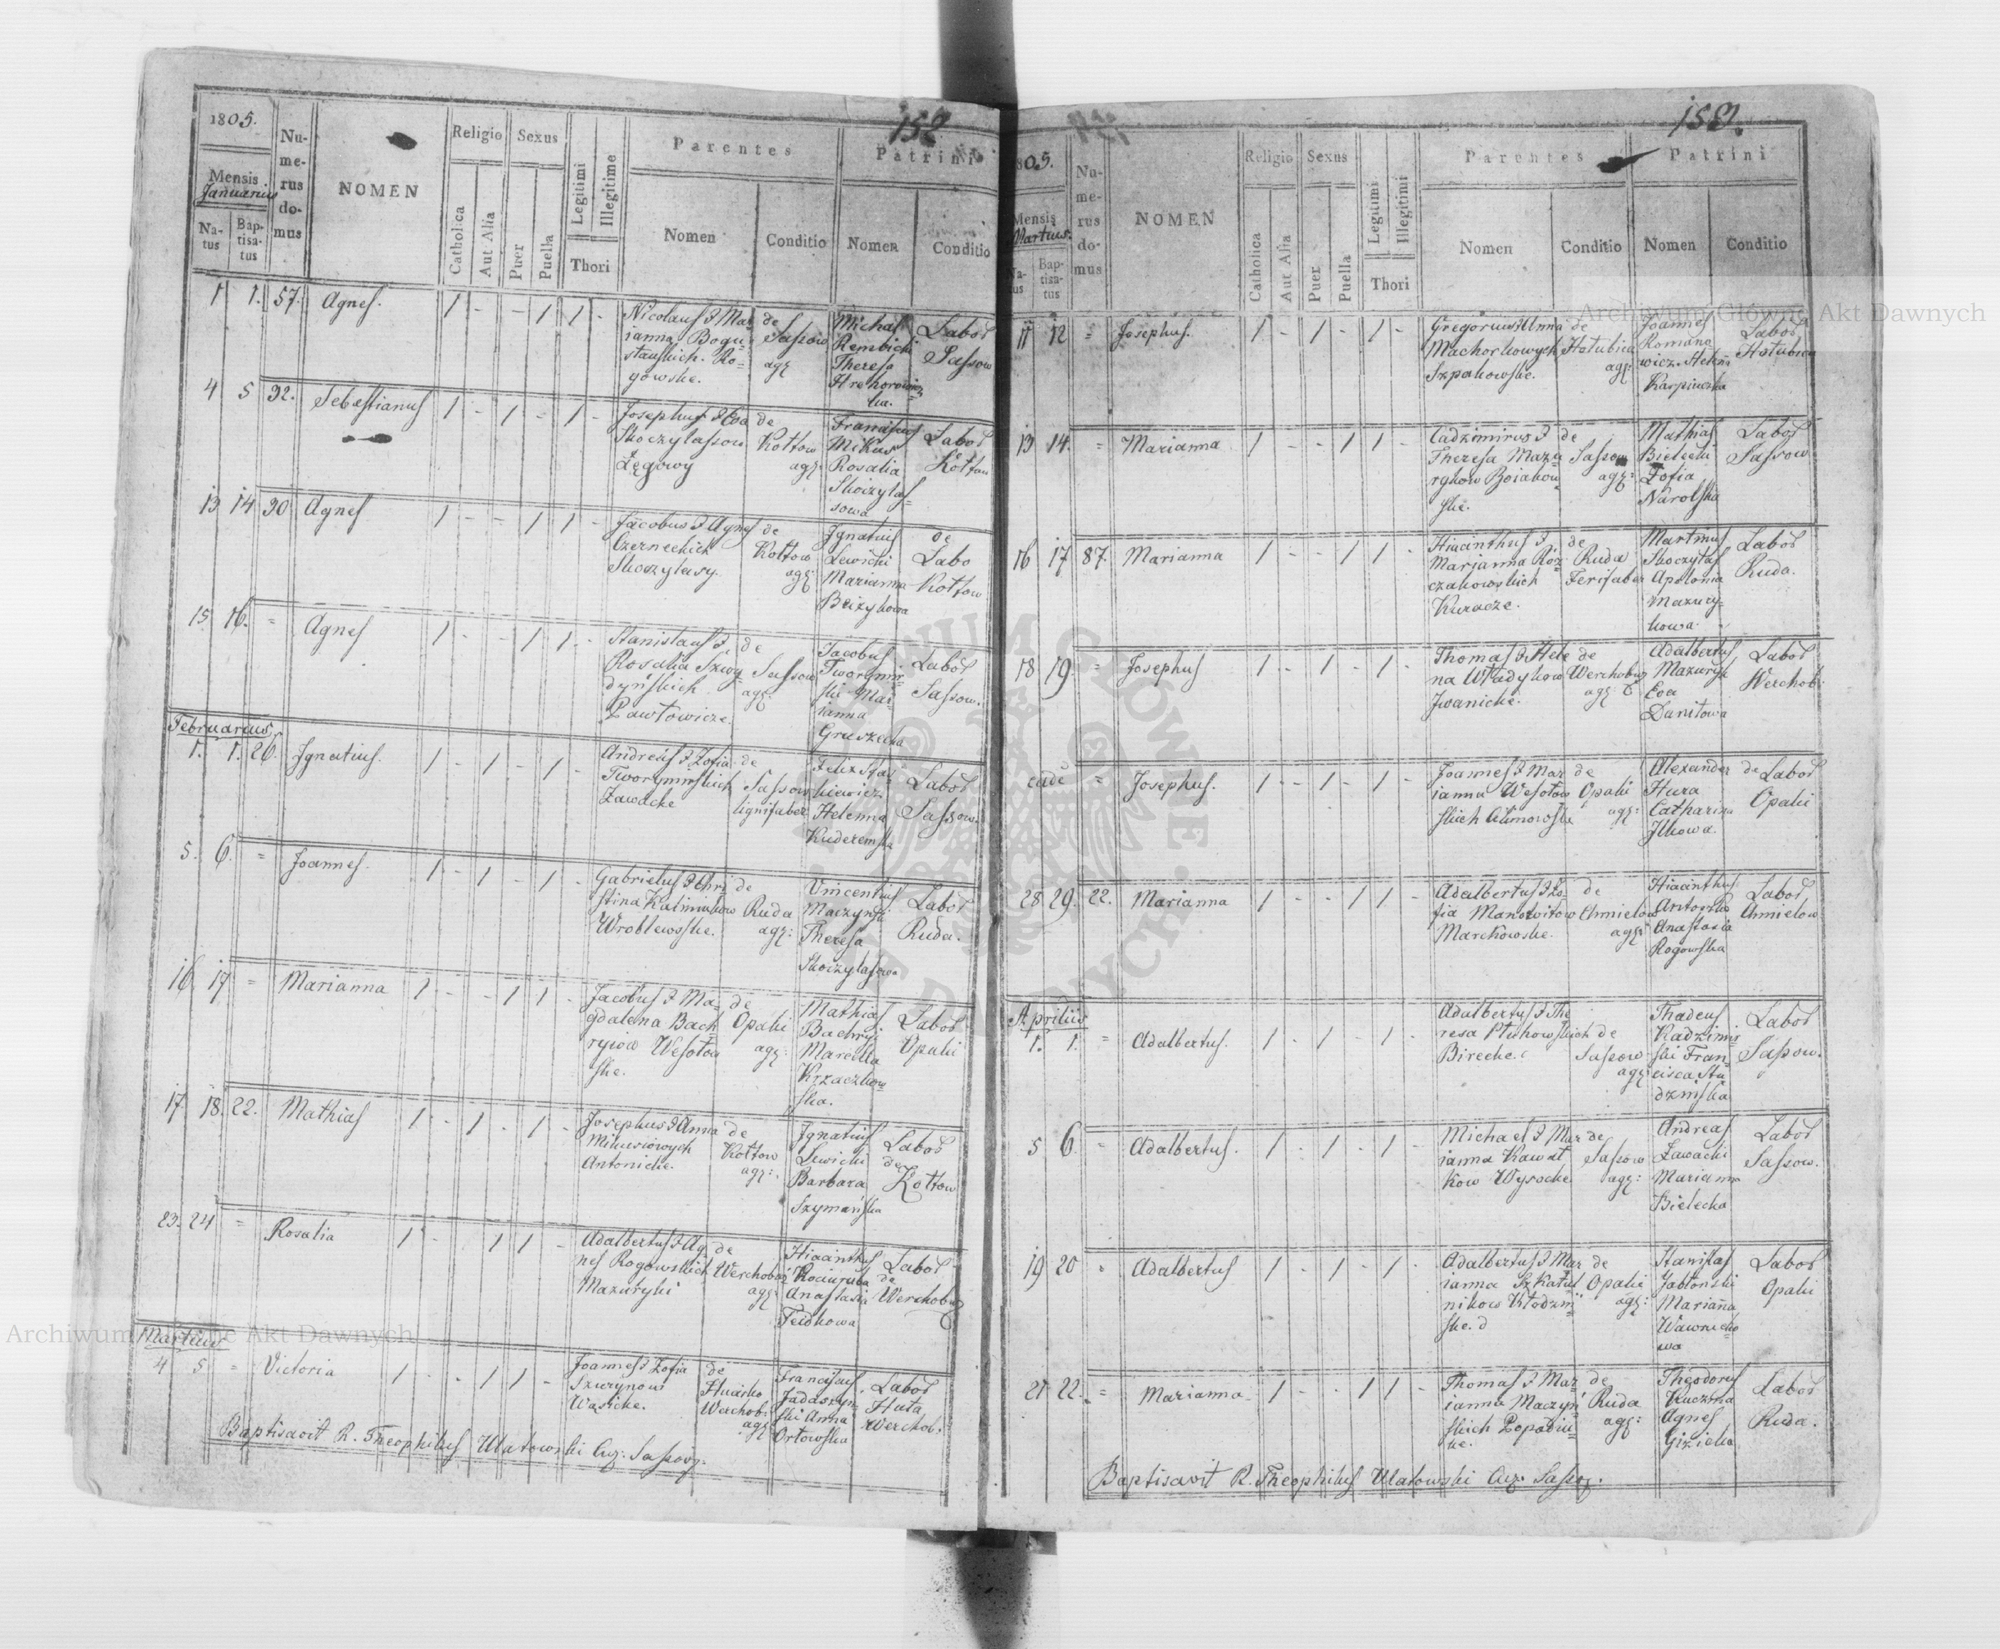 152
1805.
Mensis
Januarius
Natus
Baptisatus
Numerus domus
NOMEN
Religio
Catholica
Aut Alia
Sexus
Puer
Puella
Legitimi
Illegitime
Thori
Parentes
Nomen
Conditio
Patrini
Nomen
Conditio
1 1. 57. Agnes. 1 - - 1 1 -
Nicolaus & Mar
ianna Bogu=
Ro=
gowske.
de
Sassow
agr
Michas
Rembicki
Theresa
Labor
Sassow
4 5 32. Sebestianus 1 - 1 - 1 -
Josephus & Eva
Skoczylassow
Łęgowy
de
Kołtow
agr:
Franciscus
Mikus
Rosalia
Skoczylas=
sowa
Labor
Kołtow
13 14 30 Agnes 1 - - 1 1 -
Jacobus & Agnes
Czerneckich
Skoczylasy.
de
Kołtow
agr:
Ignatius
Lewicki
Marianna
de
Labo
Kołtow
15. 16. = Agnes 1 - - 1 1 -
Stanislaus &
Rosalia Szwy=
dyńskich
Pawłowicze.
de
Sassow
agr:
Jacobus
Tworymir=
ski Mar=
ianna
Gruszecka
Labor
Sassow.
Februarius
1. 1. 26. Ignatius. 1 - 1 - 1 -
Andreas & Zofia
Tworyminskich
Zawacke
de
Sassow
lignifaber
Felix
Helenna
Labor
Sassow.
5. 6. = Joannes. 1 - 1 - 1 -
Gabrielus & Chri
stina Kaliniukow
Wroblewske.
de
Ruda
agr:
Vincentius
Maczynski
Theresa
Skoczylasowa
Labor
Ruda.
16 17 = Marianna 1 - - 1 1 -
Jacobus & Ma=
gdalena Bach
rycow Wesołow
ske.
de
Opaki
agr:
Mathias
Marcella
Krzaczkow=
ska.
Labor
Opaki
17. 18. 22. Mathias 1 - 1 - 1 -
Josephus & Anna
Mikusiowych
Antonicke.
de
Kołtow
agr:
Ignatius
Lewicki
Barbara
Szymańska
Labor
de
Kołtow
23. 24 = Rosalia 1 - - 1 1 -
Adalbertus & Ag=
nes Rogowskich
Mazuryki
de
Werchobuz
agr
Hiacinthus
Anastasia
Feidkowa
Labor
de
Werchobuz
Martius
4 5 = Victoria 1 - - 1 1 -
Joannes & Zofia
Szurynow
Wasicke.
de
Werchob:
agr
Franciscus
ski Anna
Orłowska
Labor
Huta
Werchob.
Baptisavit R. Theophilus Ulatowski Cur: Sassov:
153.
1805.
Mensis
Martius.
Natus
Baptisatus
Numerus domus
NOMEN
Religio
Catholica
Aut Alia
Sexus
Puer
Puella
Legitimi
Illegitimi
Thori
Parentes
Nomen
Conditio
Patrini
Nomen
Conditio
11 12 = Josephus. 1 - 1 - 1 -
Gregorius & Anna
Machorkowych
Szpakowske.
de
Hołubica
agr:
Joannes
Romano
wicz
Labor
Hołubica
13 14. = Marianna 1 - - 1 1 -
Cadzimirus &
Theresa Mazu
rykow Boiakow
ske.
de
Sassow
agr:
Mathias
Bielecki
Zofia
Narolska
Labor
Sassow
16 17 87. Marianna 1 - - 1 1 -
Hiacinthus &
Marjanna Roz=
czakowskich
de
Ruda
Ferifaber
Martinus
Skoczylas
Apolonia
Mazury=
kowa.
Labor
Ruda.
18 19. = Josephus 1 - 1 - 1 -
Thomas & Hele
na Władykow
Iwanicke.
de
Werchobuz
agr:
Adalbertus
Mazuryk
Eva
Daniłowa
Labor
Werchob:
eade = Josephus. 1 - 1 - 1 -
Joannes & Mar
ianna Wesołow
skich
de
Opaki
agr:
Alexander
Hura
Catharina
Ilkowa.
de Labor
Opaki
28. 29. 22. Marianna 1 - - 1 1 -
Adalbertus & Zo=
fia Manowitow
Marckowske.
de
Chmielow
agr:
Hiacinthus
Anastasia
Rogowska
Labor
Chmielow
Aprilis
1. 1. = Adalbertus. 1 - 1 - 1 -
Adalbertus & The
resa Ptukowskich
Birecke.
de
Sassow
agr:
Thadeus
Kadzimir
ski Fran=
cisca Stu
dzinska
Labor
Sassow.
5 6. = Adalbertus. 1 - 1 - 1 -
Michael & Mar
ianna Kawał
kow Wysocke
de
Sassow
agr:
Andreas
Zawacki
Marianna
Bielecka
Labor
Sassow.
19 20 = Adalbertus 1 - 1 - 1 -
Adalbertus & Mar
ianna Szkatul
nikow Kłodzin=
ske.
de
Opaki
agr:
Stanislas
Jabłonski
Marianna
Wawrucko
wa
Labor
Opaki
21 22. = Marianna 1 - - 1 1 -
Thomas & Mar=
ianna Maczyn
skich Popadiu=
ke.
de
Ruda
agr:
Theodorus
Kuczma
Agnes
Gizicka
Labor
Ruda.
Baptisavit R. Theophilus Ulatowski Cur. Sassov.
Archiwum Główne Akt Dawnych
Archiwum Główne Akt Dawnych
ARCHIWUM GŁÓWNE AKT DAWNYCH